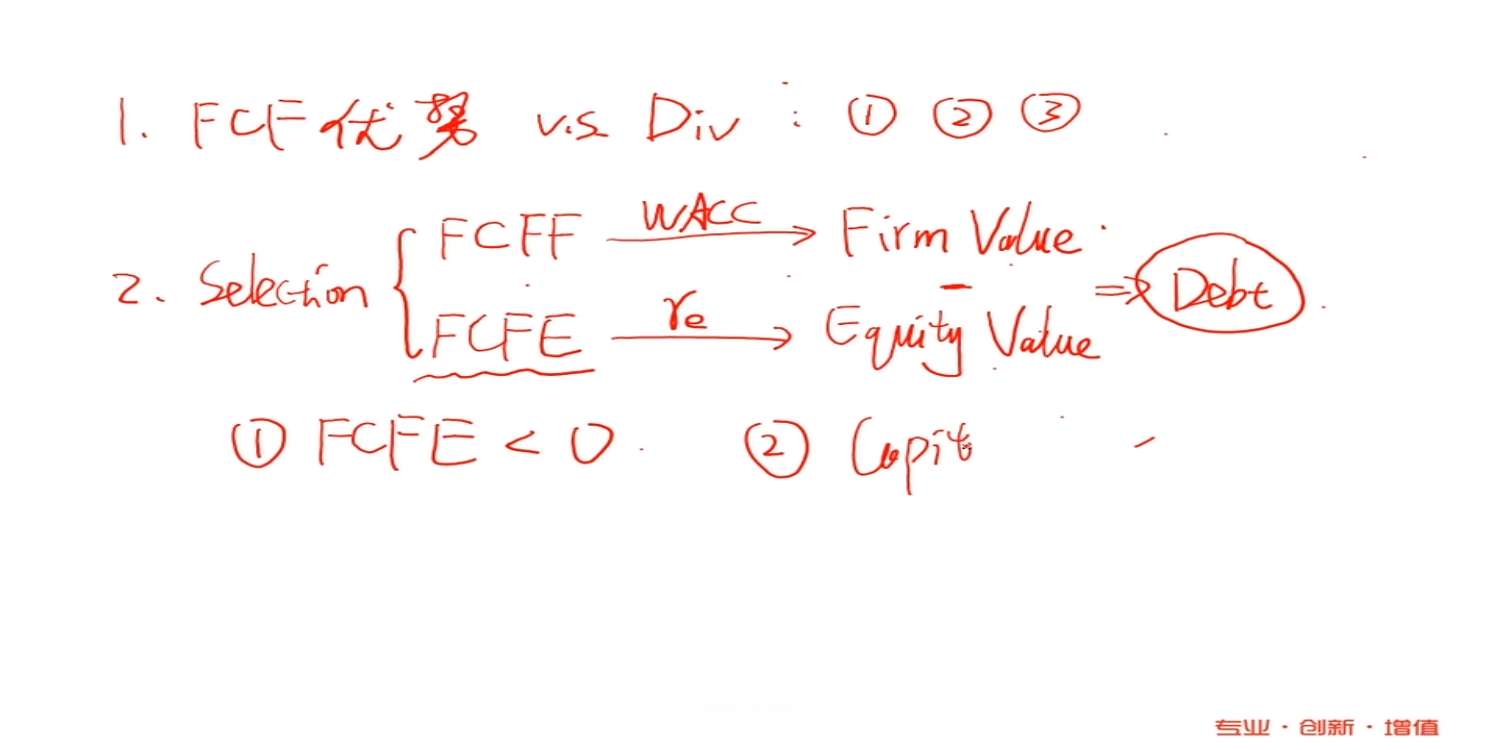 1. FCF优势 v.s. Div : ① ② ③
2. Selection { FCFF WACC → Firm Value
FCFE re → Equity Value ⇒ Debt
① FCFE < 0. ② Capit
专业·创新·增值